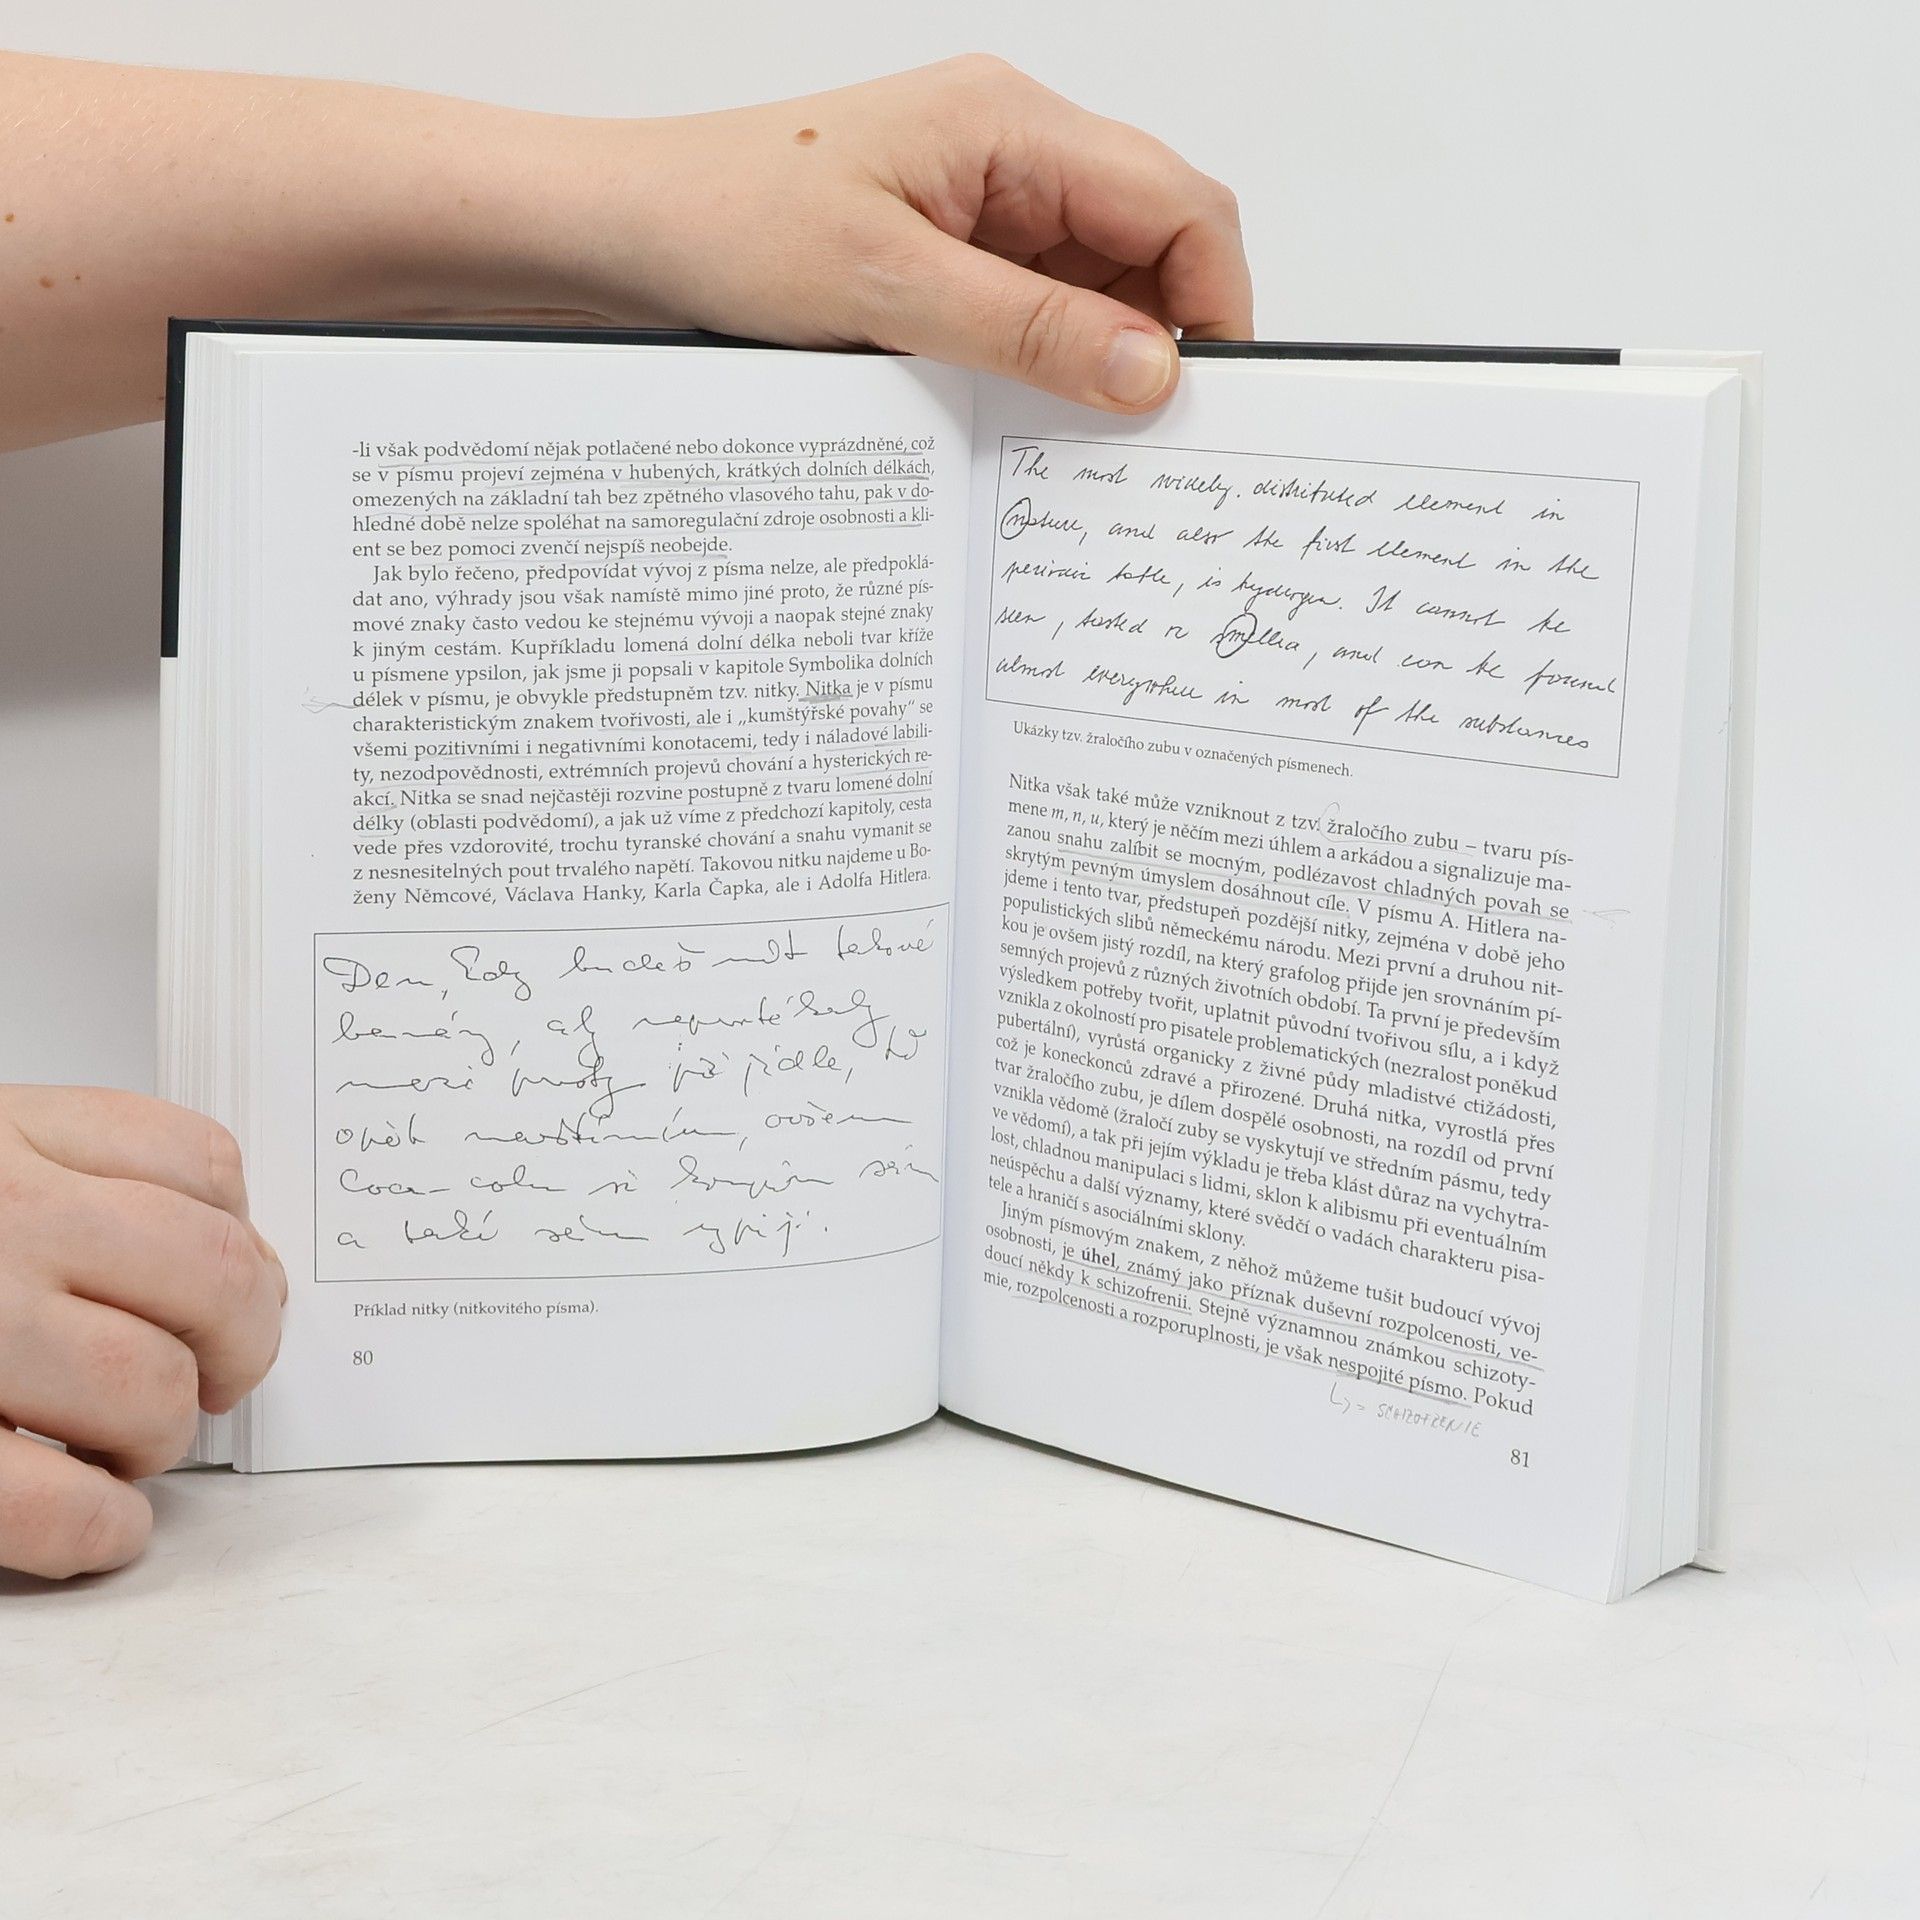 -li však podvědomí nějak potlačené nebo dokonce vyprázdněné, což
se v písmu projeví zejména v hubených, krátkých dolních délkách,
omezených na základní tah bez zpětného vlasového tahu, pak v do-
hledné době nelze spoléhat na samoregulační zdroje osobnosti a kli-
ent se bez pomoci zvenčí nejspíš neobejde.
Jak bylo řečeno, předpovídat vývoj z písma nelze, ale předpoklá-
dat ano, výhrady jsou však namístě mimo jiné proto, že různé pís-
mové znaky často vedou ke stejnému vývoji a naopak stejné znaky
k jiným cestám. Kupříkladu lomená dolní délka neboli tvar kříže
u písmene ypsilon, jak jsme ji popsali v kapitole Symbolika dolních
délek v písmu, je obvykle předstupněm tzv. nitky. Nitka je v písmu
charakteristickým znakem tvořivosti, ale i „kumštýřské povahy“ se
všemi pozitivními i negativními konotacemi, tedy i náladové labili-
ty, nezodpovědnosti, extrémních projevů chování a hysterických re-
akcí. Nitka se snad nejčastěji rozvine postupně z tvaru lomené dolní
délky (oblasti podvědomí), a jak už víme z předchozí kapitoly, cesta
vede přes vzdorovité, trochu tyranské chování a snahu vymanit se
z nesnesitelných pout trvalého napětí. Takovou nitku najdeme u Bo-
ženy Němcové, Václava Hanky, Karla Čapka, ale i Adolfa Hitlera.
Den, kdy budeš mít takové
banány, aby neputékaly
mezi prsty při jídle, tě
opět navštívím, ovšem
Coca-colu si koupím sám
a také sám vypiji.
Příklad nitky (nitkovitého písma).
80
The most widely distributed element in
nature, and also the first element in the
periodic table, is hydrogen. It cannot be
seen, tasted or smelled, and can be found
almost everywhere in most of the substances
Ukázky tzv. žraločího zubu v označených písmenech.
Nitka však také může vzniknout z tzv. žraločího zubu – tvaru pís-
mene m, n, u, který je něčím mezi úhlem a arkádou a signalizuje ma-
zanou snahu zalíbit se mocným, podlézavost chladných povah se
skrytým pevným úmyslem dosáhnout cíle. V písmu A. Hitlera na-
jdeme i tento tvar, předstupeň pozdější nitky, zejména v době jeho
populistických slibů německému národu. Mezi první a druhou nit-
kou je ovšem jistý rozdíl, na který grafolog přijde jen srovnáním pí-
semných projevů z různých životních období. Ta první je především
výsledkem potřeby tvořit, uplatnit původní tvořivou sílu, a i když
vznikla z okolností pro pisatele problematických (nezralost poněkud
pubertální), vyrůstá organicky z živné půdy mladistvé ctižádosti,
což je koneckonců zdravé a přirozené. Druhá nitka, vyrostlá přes
tvar žraločího zubu, je dílem dospělé osobnosti, na rozdíl od první
vznikla vědomě (žraločí zuby se vyskytují ve středním pásmu, tedy
ve vědomí), a tak při jejím výkladu je třeba klást důraz na vychytra-
lost, chladnou manipulaci s lidmi, sklon k alibismu při eventuálním
neúspěchu a další významy, které svědčí o vadách charakteru pisa-
tele a hraničí s asociálními sklony.
Jiným písmovým znakem, z něhož můžeme tušit budoucí vývoj
osobnosti, je úhel, známý jako příznak duševní rozpolcenosti, ve-
doucí někdy k schizofrenii. Stejně významnou známkou schizoty-
mie, rozpolcenosti a rozporuplnosti, je však nespojité písmo. Pokud
= SCHIZOFRENIE
81